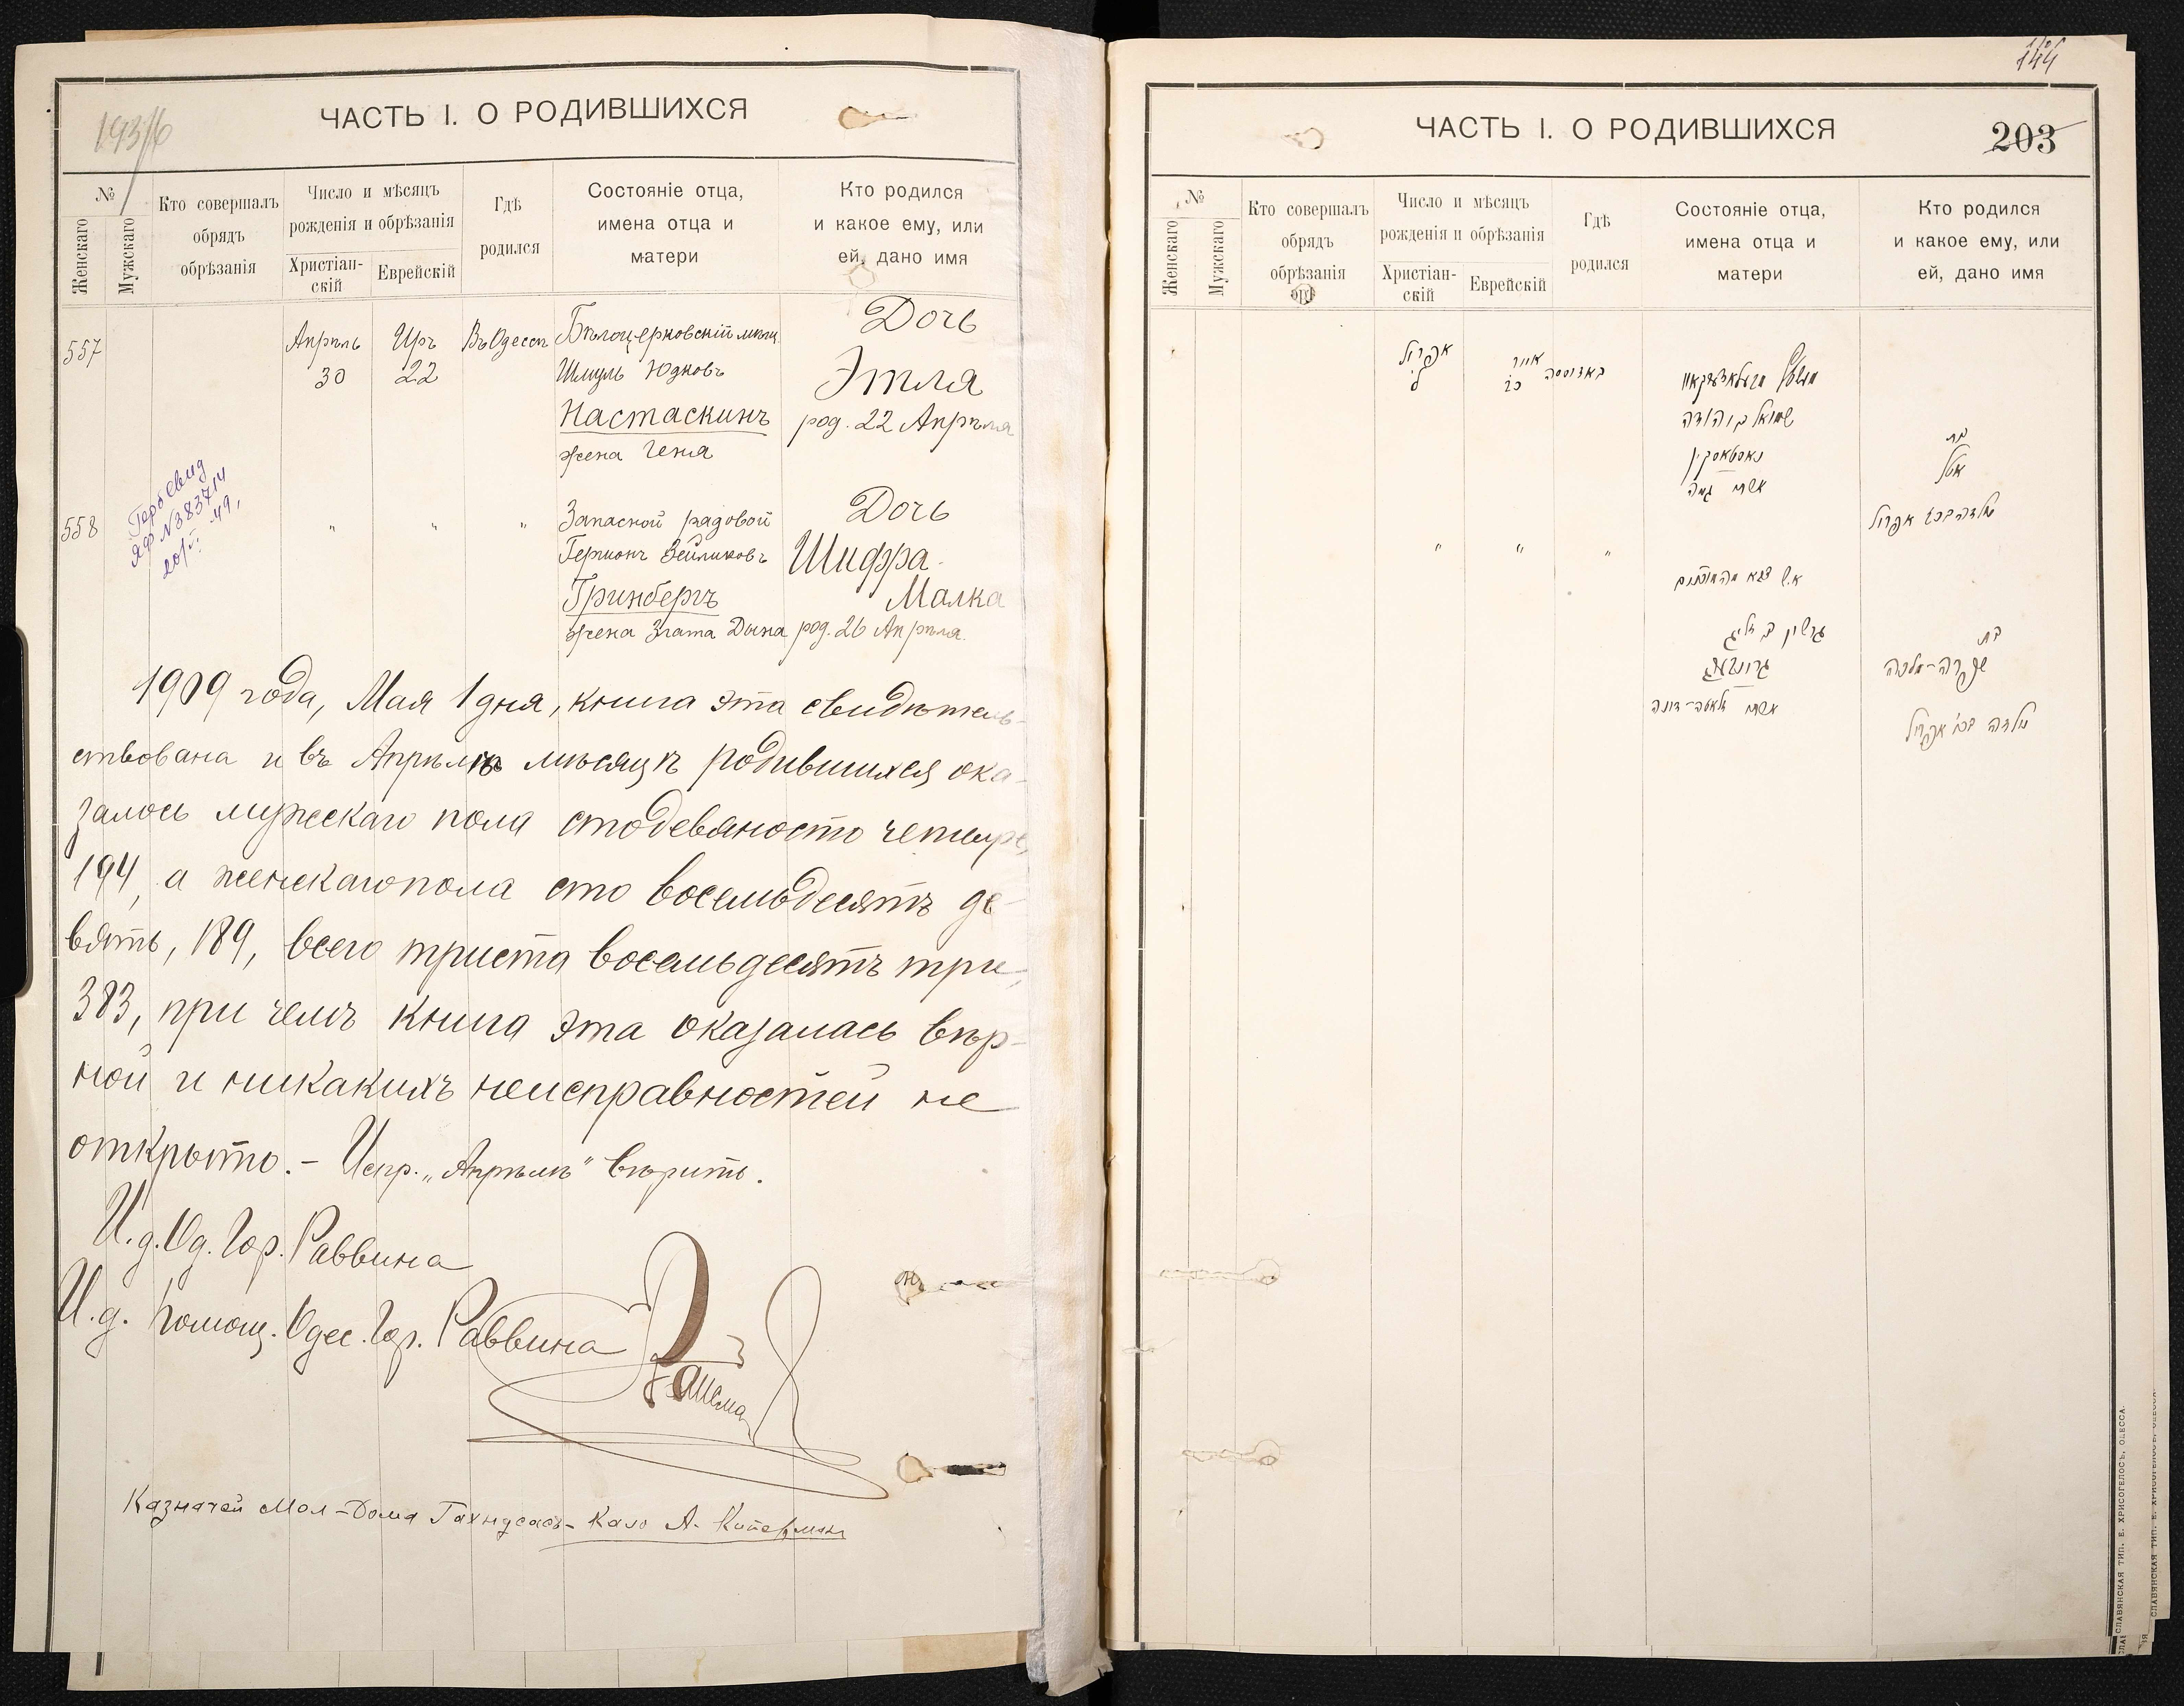 193/6
ЧАСТЬ I. О РОДИВШИХСЯ
№
Женскаго
Мужскаго
Кто совершалъ
обрядъ
обрѣзанія
Число и мѣсяцъ
рожденія и обрѣзанія
Христіан-
скій
Еврейскій
Гдѣ
родился
Состояніе отца,
имена отца и
матери
Кто родился
и какое ему, или
ей, дано имя
557
Апрѣль
30
Иръ
22
Въ Одессѣ
Бѣлоцерковскій мѣщ.
Шмуль Юдковъ
Настаскинъ
жена Геня
Дочь
Этля
род. 22 Апрѣля
558
№ 383714
"
"
"
Запасной рядовой
Гершонъ Зейликовъ
Гринбергъ
жена Злата Дына
Дочь
Шифра-
Малка
род. 26 Апрѣля.
1909 года, Мая 1 дня, книга эта свидѣтель-
ствована и въ Апрѣлѣ мѣсяцѣ родившихся ока-
залось мужескаго пола сто девяносто четыре,
194, а женскаго пола сто восемьдесятъ де-
вять, 189, всего триста восемьдесятъ три,
383, при чемъ книга эта оказалась вѣр-
ной и никакихъ неисправностей не
открыто. – Испр. „Апрѣлѣ" вѣрить.
И. д. Од. Гор. Раввина
И. д. Помощ. Одес. Гор. Раввина
Казначей Мол-Дома
144
ЧАСТЬ I. О РОДИВШИХСЯ
203
№
Женскаго
Мужскаго
Кто совершалъ
обрядъ
обрѣзанія
Число и мѣсяцъ
рожденія и обрѣзанія
Христіан-
скій
Еврейскій
Гдѣ
родился
Состояніе отца,
имена отца и
матери
Кто родился
и какое ему, или
ей, дано имя
אפריל
ל
אייר
כב
באדעססא
שמואל ב יהודה
נאסטאסקין
אשתו געניה
בת
אטל
נולדה בכב אפריל
"
"
"
גרשון ב זליג
גרינבערג
אשתו זלאטה-דינה
בת
שפרה-מלכה
נולדה בכו אפריל
СЛАВЯНСКАЯ ТИП. Е. ХРИСОГЕЛОСЪ, ОДЕССА.